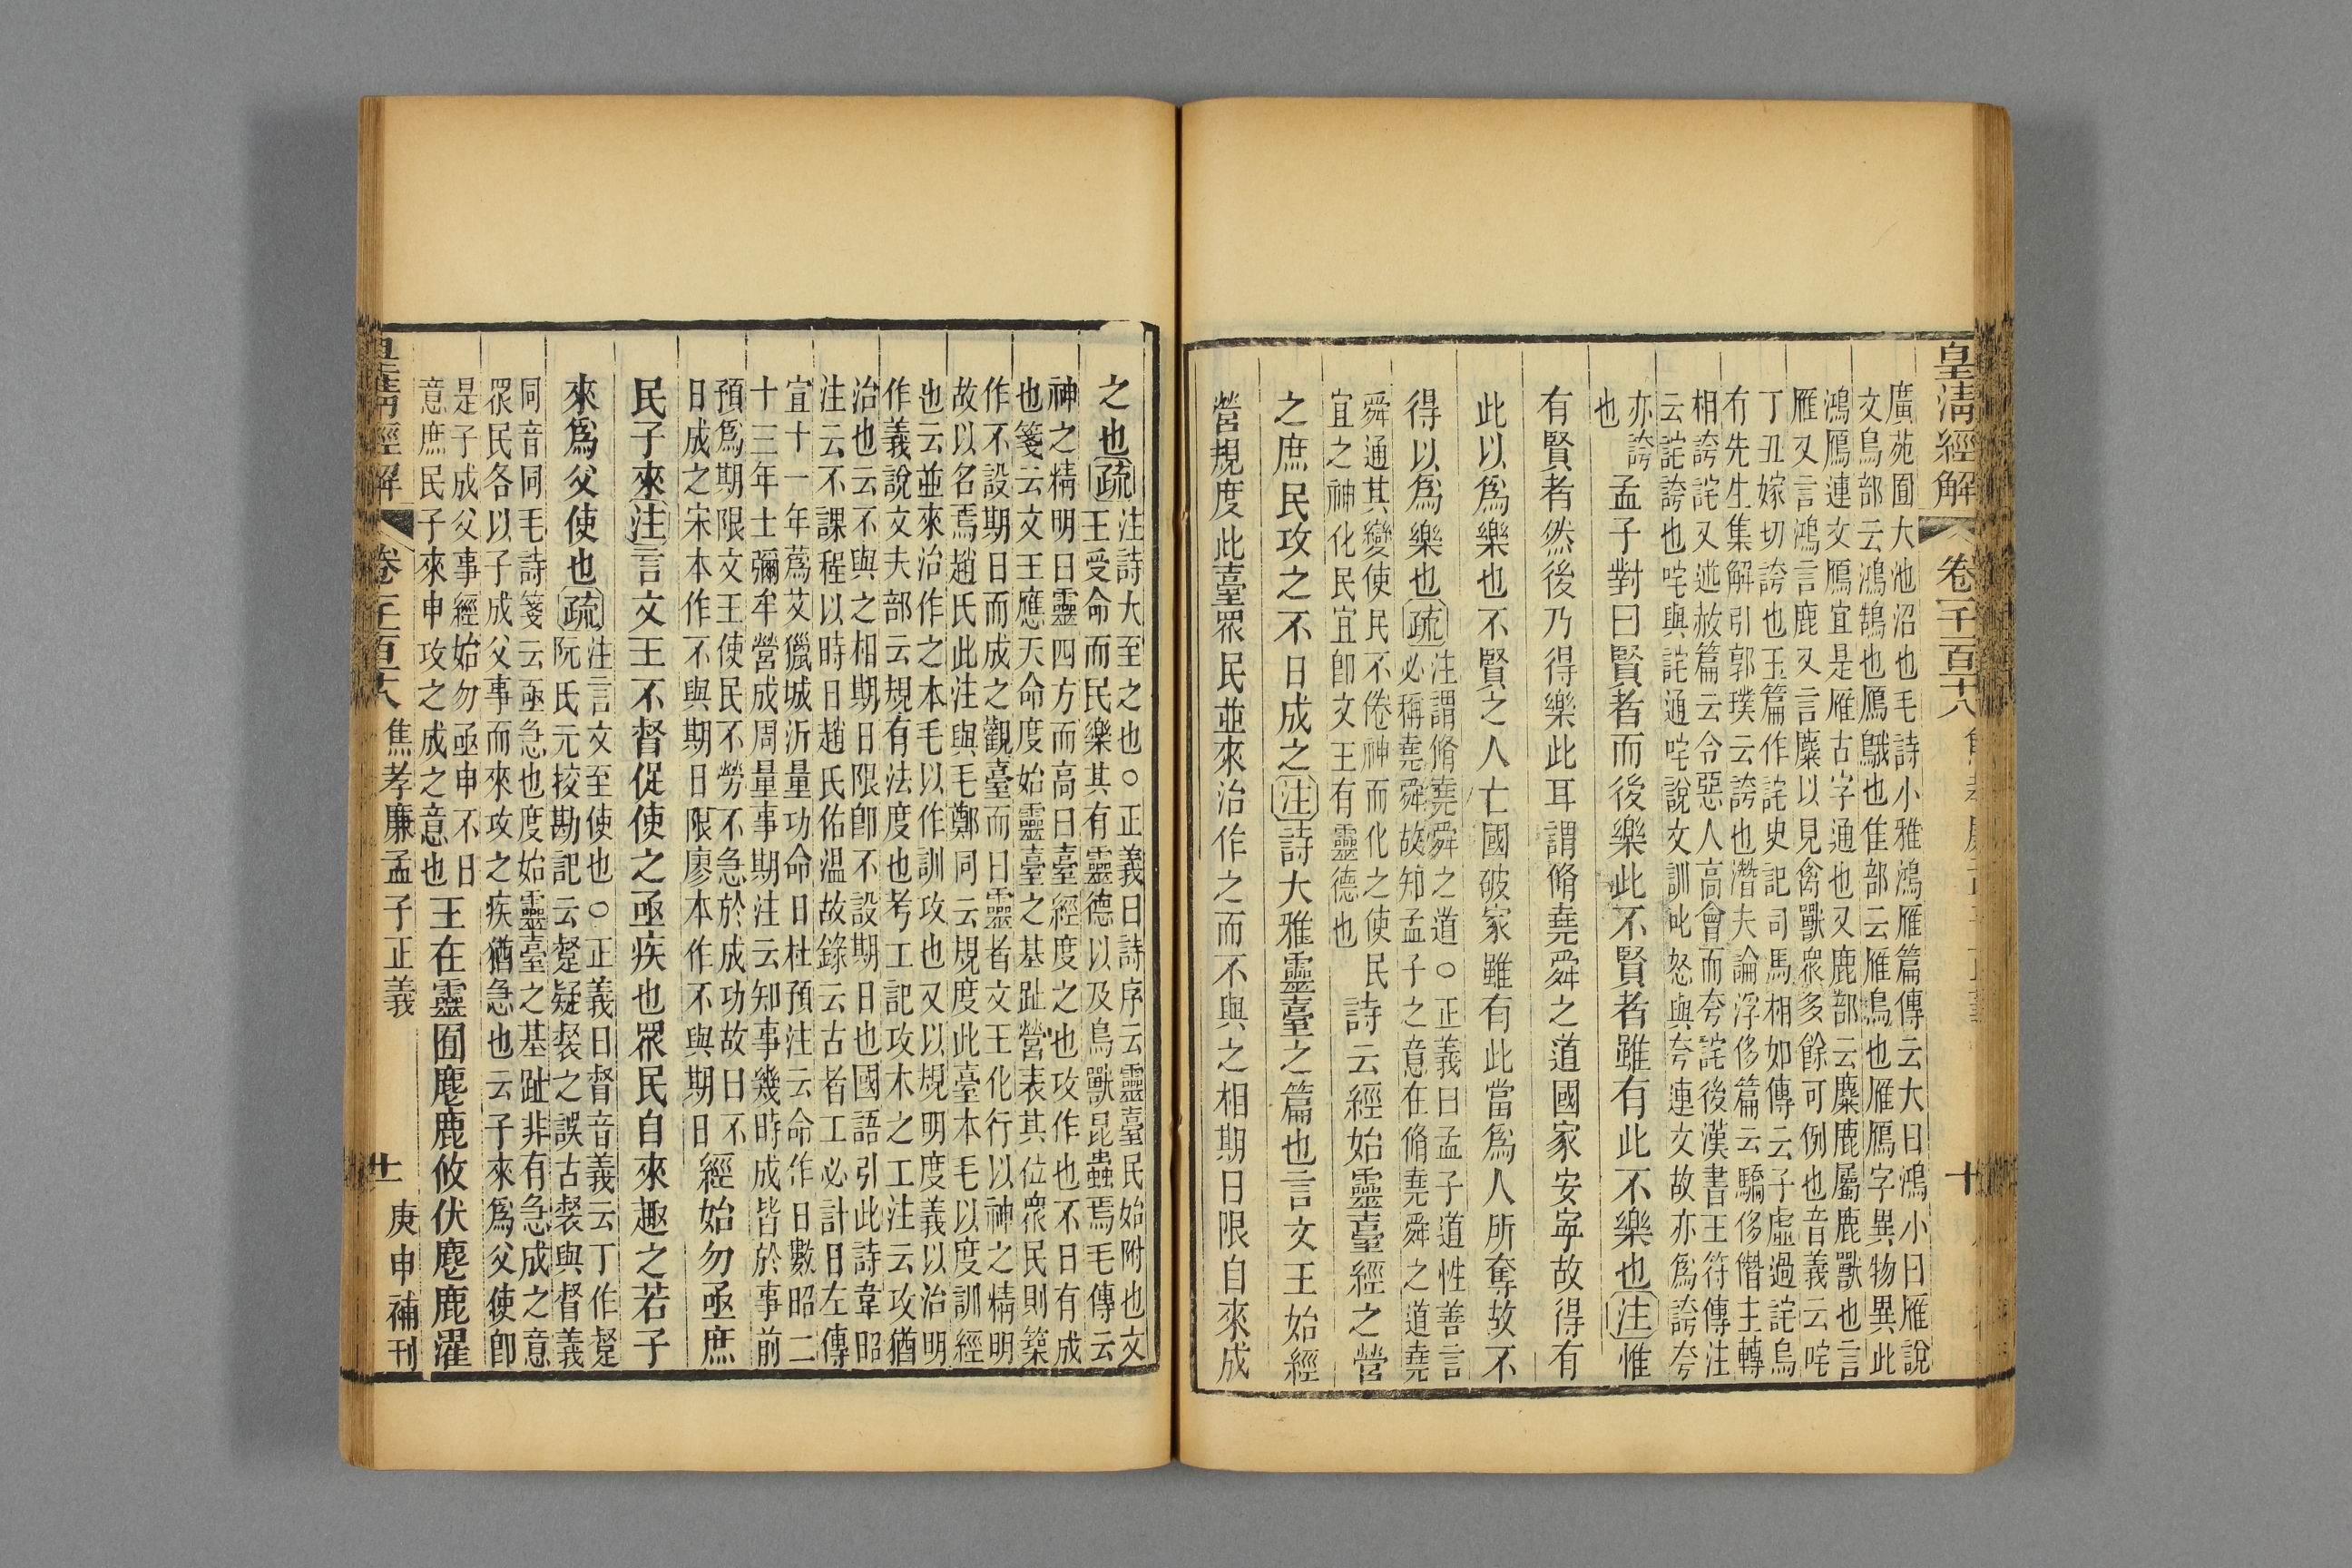 皇清經解
卷一千一百十八
十
廣苑囿大池沼也毛詩小雅鴻雁篇傳云大曰鴻小曰雁說
文鳥部云鴻鵠也鴈䳘也隹部云雁鳥也雁鴈字異物異此
鴻鴈連文鴈宜是雁古字通也又鹿部云麋鹿屬鹿獸也言
雁又言鴻言鹿又言麋以見禽獸衆多餘可例也音義云咤
丁丑嫁切誇也玉篇作詫史記司馬相如傳云子虛過詫烏
有先生集解引郭璞云誇也潛夫論浮侈篇云驕侈僭主轉
相誇詫又述赦篇云令惡人高會而夸詫後漢書王符傳注
云詫誇也咤與詫通咤說文訓叱怒與夸連文故亦爲誇夸
亦誇
也
孟子對曰賢者而後樂此不賢者雖有此不樂也注惟
有賢者然後乃得樂此耳謂脩堯舜之道國家安寧故得有
此以爲樂也不賢之人亡國破家雖有此當爲人所奪故不
得以爲樂也疏
注謂脩堯舜之道○正義曰孟子道性善言
必稱堯舜故知孟子之意在脩堯舜之道堯
舜通其變使民不倦神而化之使民
宜之神化民宜卽文王有靈德也
詩云經始靈臺經之營
之庶民攻之不日成之注詩大雅靈臺之篇也言文王始經
營規度此臺眾民並來治作之而不與之相期日限自來成
之也疏
注詩大至之也○正義曰詩序云靈臺民始附也文
王受命而民樂其有靈德以及鳥獸昆蟲焉毛傳云
神之精明曰靈四方而高曰臺經度之也攻作也不日有成
也箋云文王應天命度始靈臺之基趾營表其位衆民則築
作不設期日而成之觀臺而曰靈者文王化行以神之精明
故以名焉趙氏此注與毛鄭同云規度此臺本毛以度訓經
也云並來治作之本毛以作訓攻也又以規明度義以治明
作義說文夫部云規有法度也考工記攻木之工注云攻猶
治也云不與之相期日限卽不設期日也國語引此詩韋昭
注云不課程以時日趙氏佑溫故錄云古者工必計日左傳
宜十一年蒍艾獵城沂量功命日杜預注云命作日數昭二
十三年士彌牟營成周量事期注云知事幾時成皆於事前
預爲期限文王使民不勞不急於成功故曰不
日成之宋本作不與期日限廖本作不與期日
經始勿亟庶
民子來注言文王不督促使之亟疾也眾民自來趣之若子
來爲父使也疏
注言文至使也○正義曰督音義云丁作䙘
阮氏元挍勘記云䙘疑裻之誤古裻與督義
同音同毛詩箋云亟急也度始靈臺之基趾非有急成之意
眾民各以子成父事而來攻之疾猶急也云子來爲父使卽
是子成父事經始勿亟申不日
意庶民子來申攻之成之意也
王在靈囿麀鹿攸伏麀鹿濯
皇清經解
卷一千一百十八
焦孝廉孟子正義
十一
庚申補刊